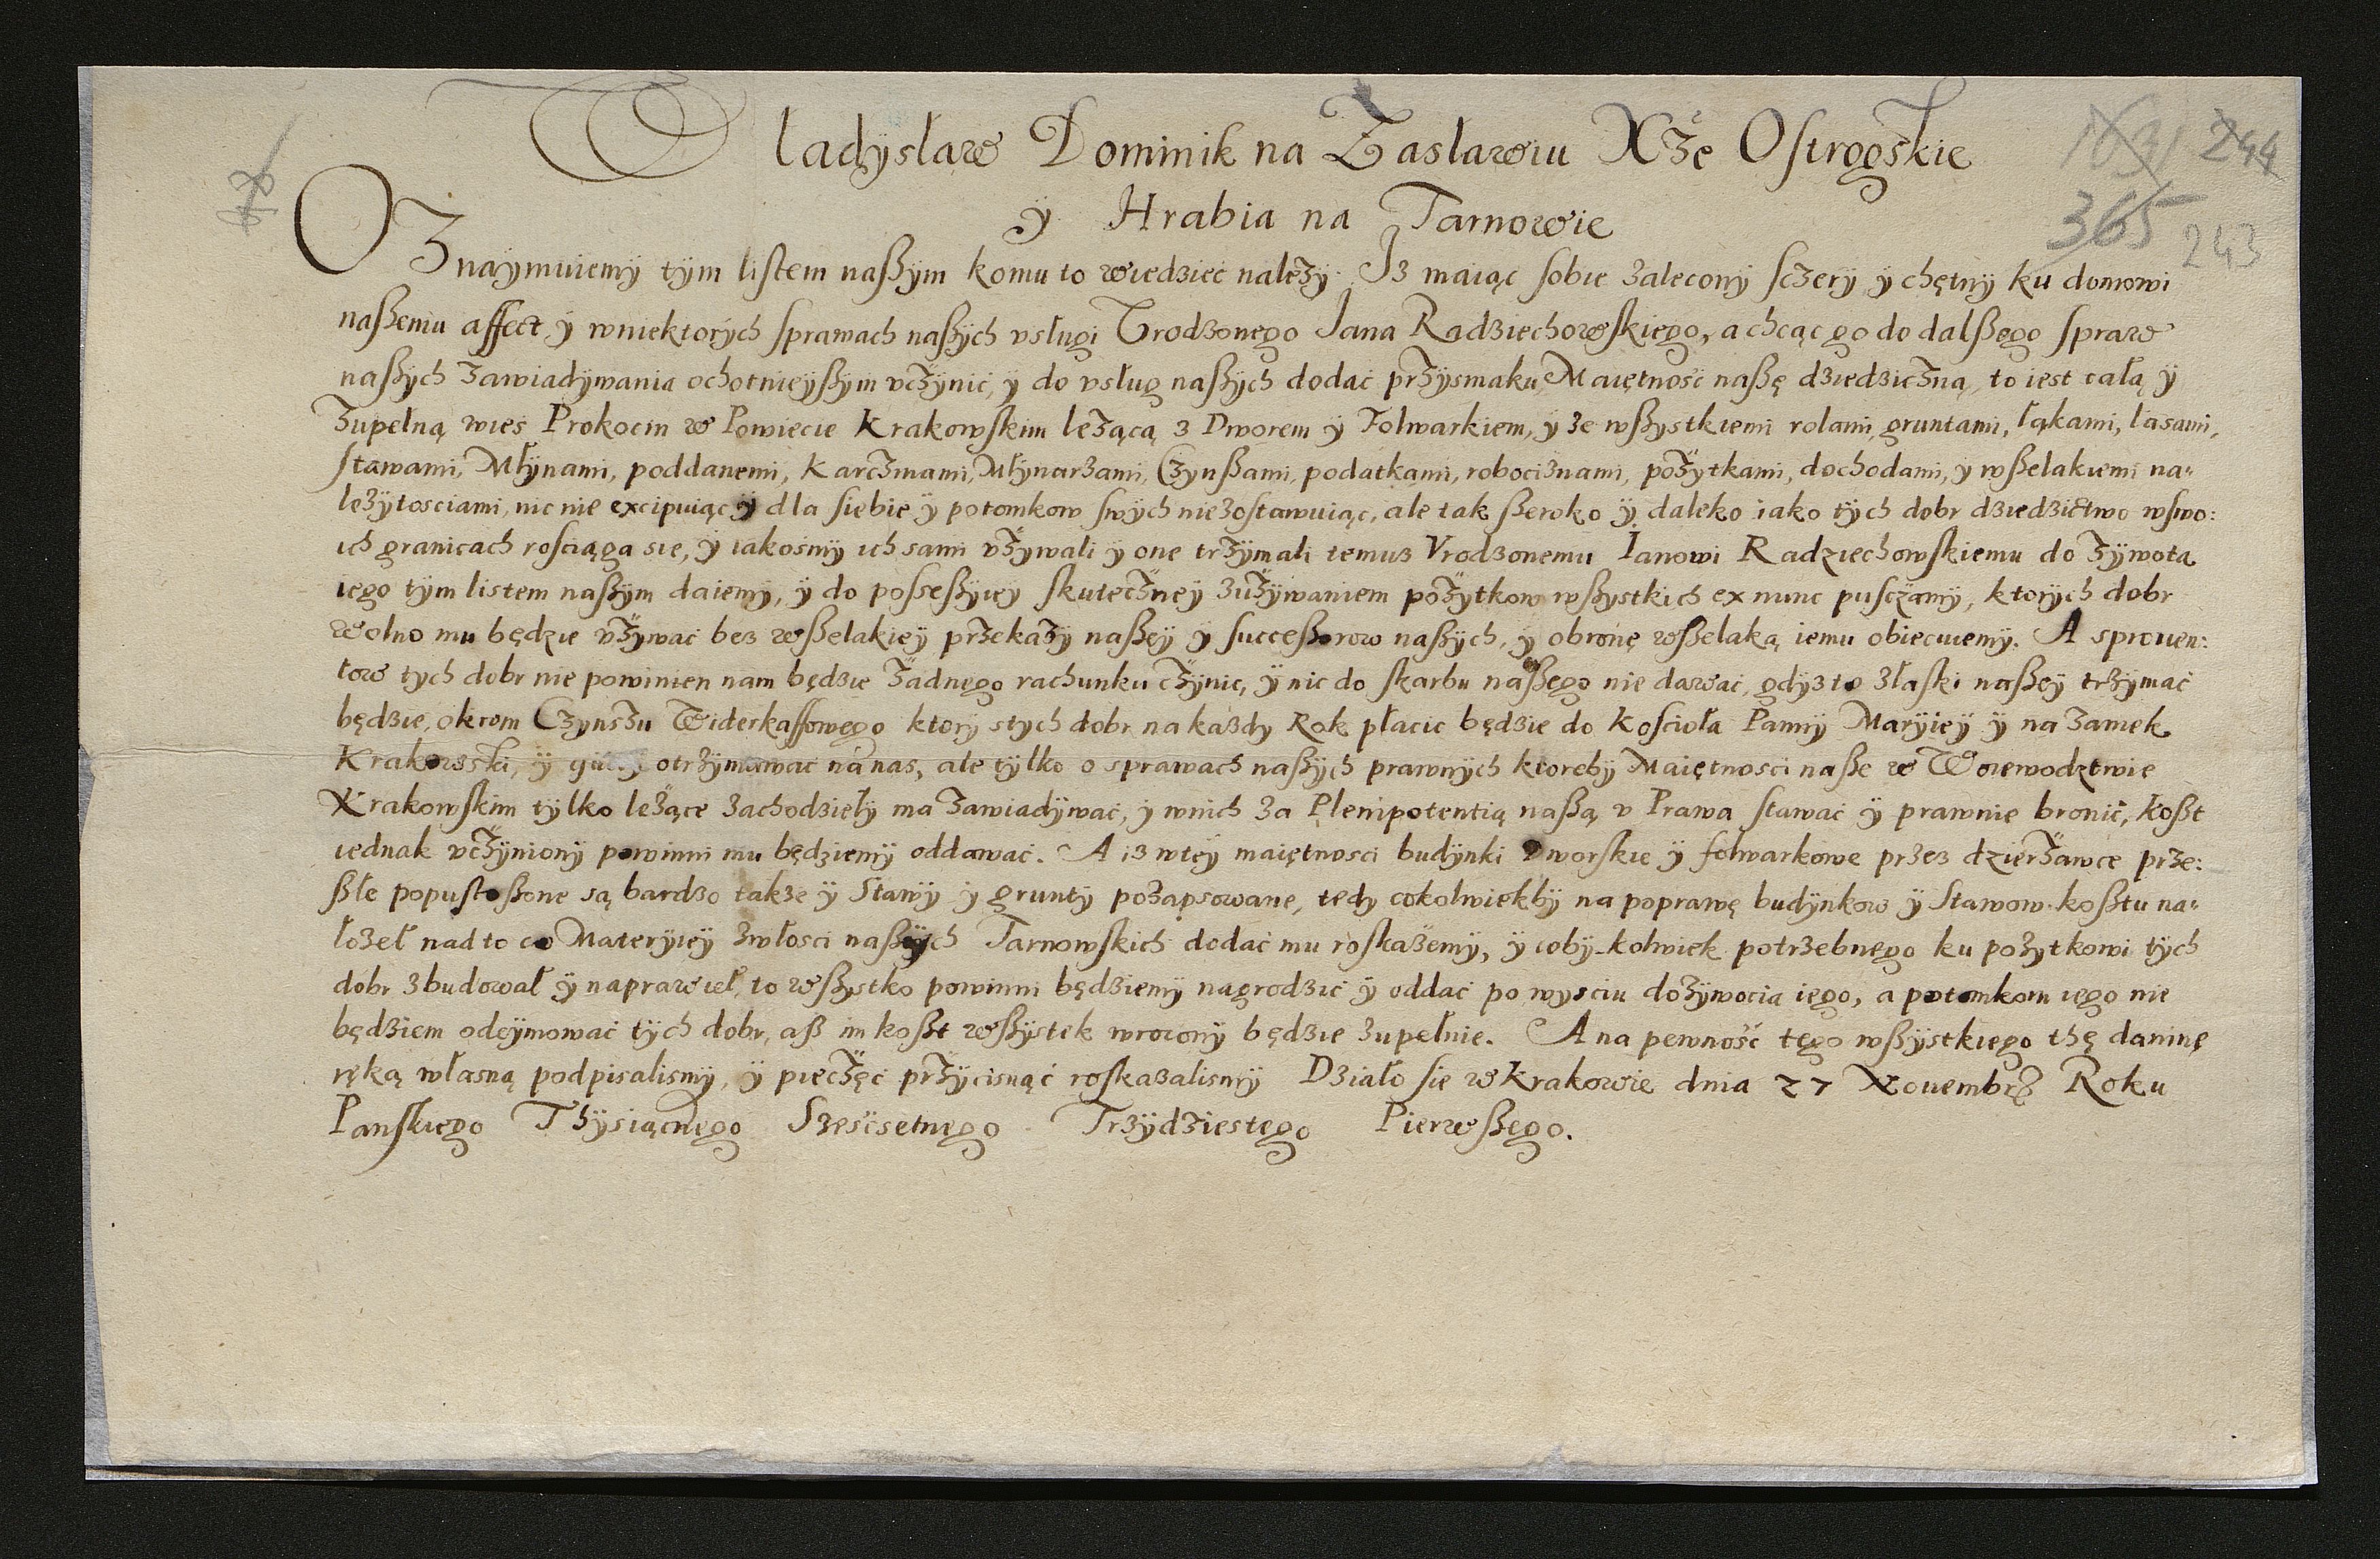 Wladysław Dominik na Zasławiu Xże Ostrogskie
ÿ Hrabia na Tarnowie
OZnaÿmuiemÿ tÿm listem naßÿm komu to wiedzieć należÿ. Iz maiąc sobie zaleconÿ sczerÿ ÿ chętnÿ ku domowi
naßemu affect ÿ wniektorÿch sprawach naßÿch vsługi Vrodzonego Jana Radziechowskiego, a chcąc go do dalßego spraw
naßÿch zawiadÿwania ochotnieÿßÿm vczÿnić, ÿ do vsług naßÿch dodać przÿsmaku, Maiętność naßę dziedziczną, to iest całą ÿ
zupełną wieś Prokocim w Powiecie Krakowskim leżącą z Dworem ÿ Folwarkiem, ÿ ze wßystkiemi rolami, gruntami, łąkami, lasami,
stawami, Młÿnami, poddanemi, Karczmami, Młÿnarzami, Czÿnßami, podatkami, robociznami, pożÿtkami, dochodami, y wßelakiemi na-
leżÿtosciami, nic nie excipuiąc ÿ dla siebie ÿ potomkow swÿch niezostawuiąc, ale tak ßeroko ÿ daleko iako tÿch dobr dziedzictwo wswo:
ich granicach rosciąga sie, ÿ iakosmÿ ich sami vżÿwali ÿ one trzÿmali temuz Vrodzonemu Ianowi Radziechowskiemu do żÿwota
iego tÿm listem naßÿm daiemÿ, ÿ do posseßÿieÿ skuteczneÿ zużÿwaniem pożÿtkow wßystkich ex nunc pusczamÿ, ktorÿch dobr
wolno mu będzie vżÿwać bez wßelakieÿ przekazÿ naßeÿ ÿ successorow naßÿch, ÿ obronę wßelaką iemu obiecuiemÿ. A sprouen:
tow tych dobr nie powinien nam będzie żadnego rachunku czÿnic, ÿ nic do skarbu naßego nie dawać, gdÿz to złaski naßeÿ trzÿmać
będzie, okrom Czÿnszu Widerkaffowego ktorÿ stych dobr na kazdy Rok płacic będzie do Kościoła Pannÿ Marÿieÿ ÿ na Zamek
Krakowski, ÿ otrzÿmawać na nas, ale tÿlko o sprawach naßÿch prawnÿch ktorebÿ Maiętnosci naße w Woiewodztwie
Krakowskim tÿlko leżące zachodziełÿ ma zawiadÿwać, ÿ wnich za Plenipotentią naßą v Prawa stawać ÿ prawnie bronić, koßt
iednak vczÿnionÿ powinni mu będziemÿ oddawać. A iz wteÿ maiętnosci budÿnki Dworskie ÿ folwarkowe przez dzierżawce prze:
ßłe popustoßone są bardzo także ÿ Stawÿ ÿ gruntÿ pozapsowane, tedy cokolwiekbÿ na poprawę budÿnkow ÿ Stawow koßtu na-
łożeł nad to co Materÿieÿ zwłosci naßÿch Tarnowskich dodać mu roskażemÿ, ÿ coby-kolwiek potrzebnego ku pożytkowi tÿch
dobr zbudował ÿ naprawieł, to wßystko powinni będziemÿ nagrodzić ÿ oddać po wysciu dożÿwocia iego, a potomkom iego nie
będziem odeÿmować tÿch dobr, aß im koßt wßÿstek wroconÿ będzie zupełnie. A na pewność tego wßÿstkiego thę daninę
ręką własną podpisalismÿ, ÿ pieczęć przÿcisnąć roskazalismÿ Działo sie w Krakowie dnia 27 Nouembrs Roku
Panskiego Thÿsiącnego Szescsetnego Trzÿdziestego Pierwßego.
1631 244
365 243